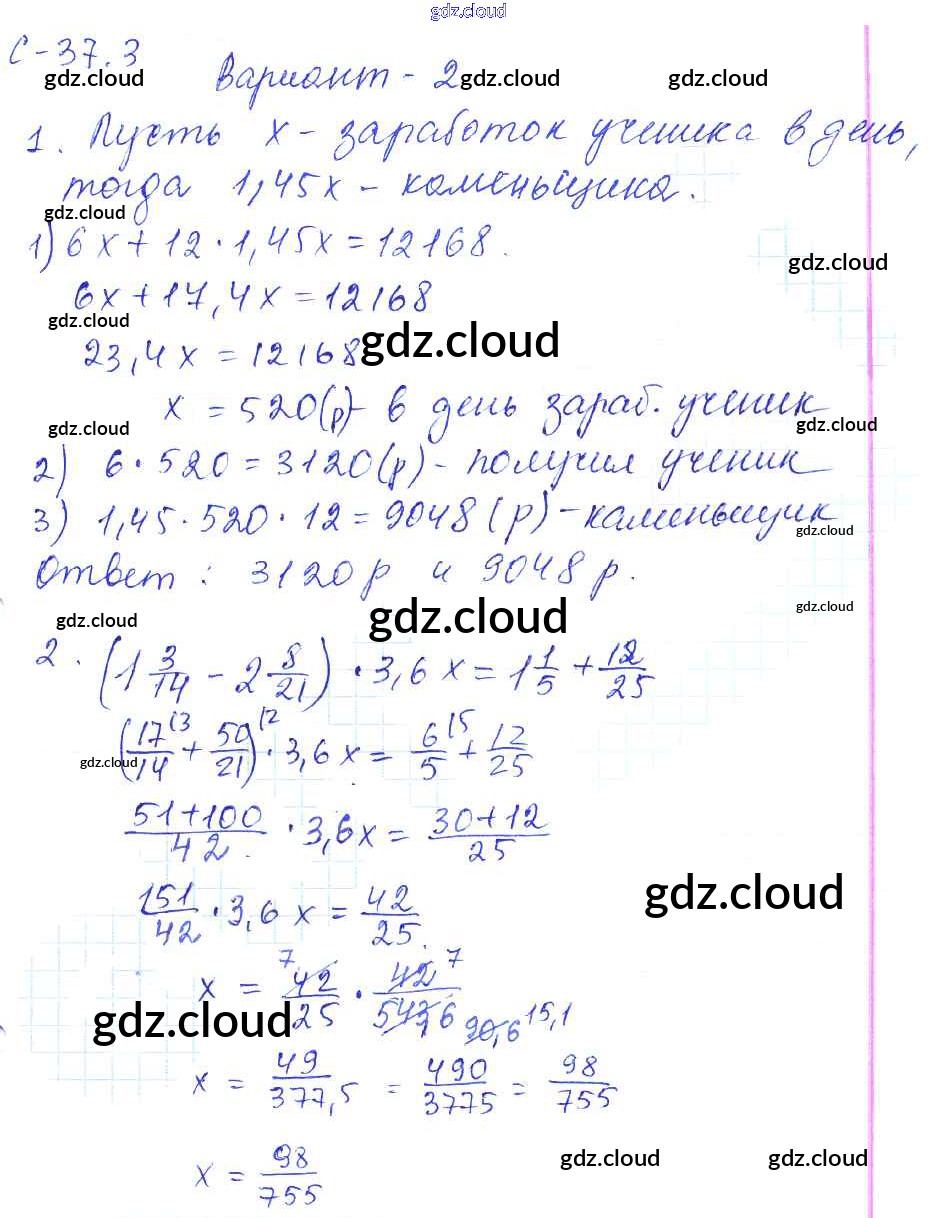 gdz.cloud
С-37.3
gdz.cloud gdz.cloud gdz.cloud
Вариант - 2
1. Пусть x - заработок ученика в день,
тогда 1,45x - каменьщика.
gdz.cloud
1) 6x + 12 · 1,45x = 12168.
gdz.cloud
6x + 17,4x = 12168
gdz.cloud
23,4x = 12168
gdz.cloud
x = 520(р) - в день зараб. ученик
gdz.cloud gdz.cloud
2) 6 · 520 = 3120(р) - получил ученик
3) 1,45 · 520 · 12 = 9048 (р) - каменьщик
gdz.cloud
Ответ: 3120 р и 9048 р.
gdz.cloud gdz.cloud gdz.cloud
2. (1 3/14 - 2 8/21) · 3,6 x = 1 1/5 + 12/25
(17/14 (3 + 50/21 (2) · 3,6 x = 6/5 (5 + 12/25
gdz.cloud
51+100/42 · 3,6x = 30+12/25
gdz.cloud
151/42 · 3,6 x = 42/25
x = 42/25 7 · 42/543,6 7 90,6 15,1
gdz.cloud
x = 49/377,5 = 490/3775 = 98/755
x = 98/755
gdz.cloud gdz.cloud